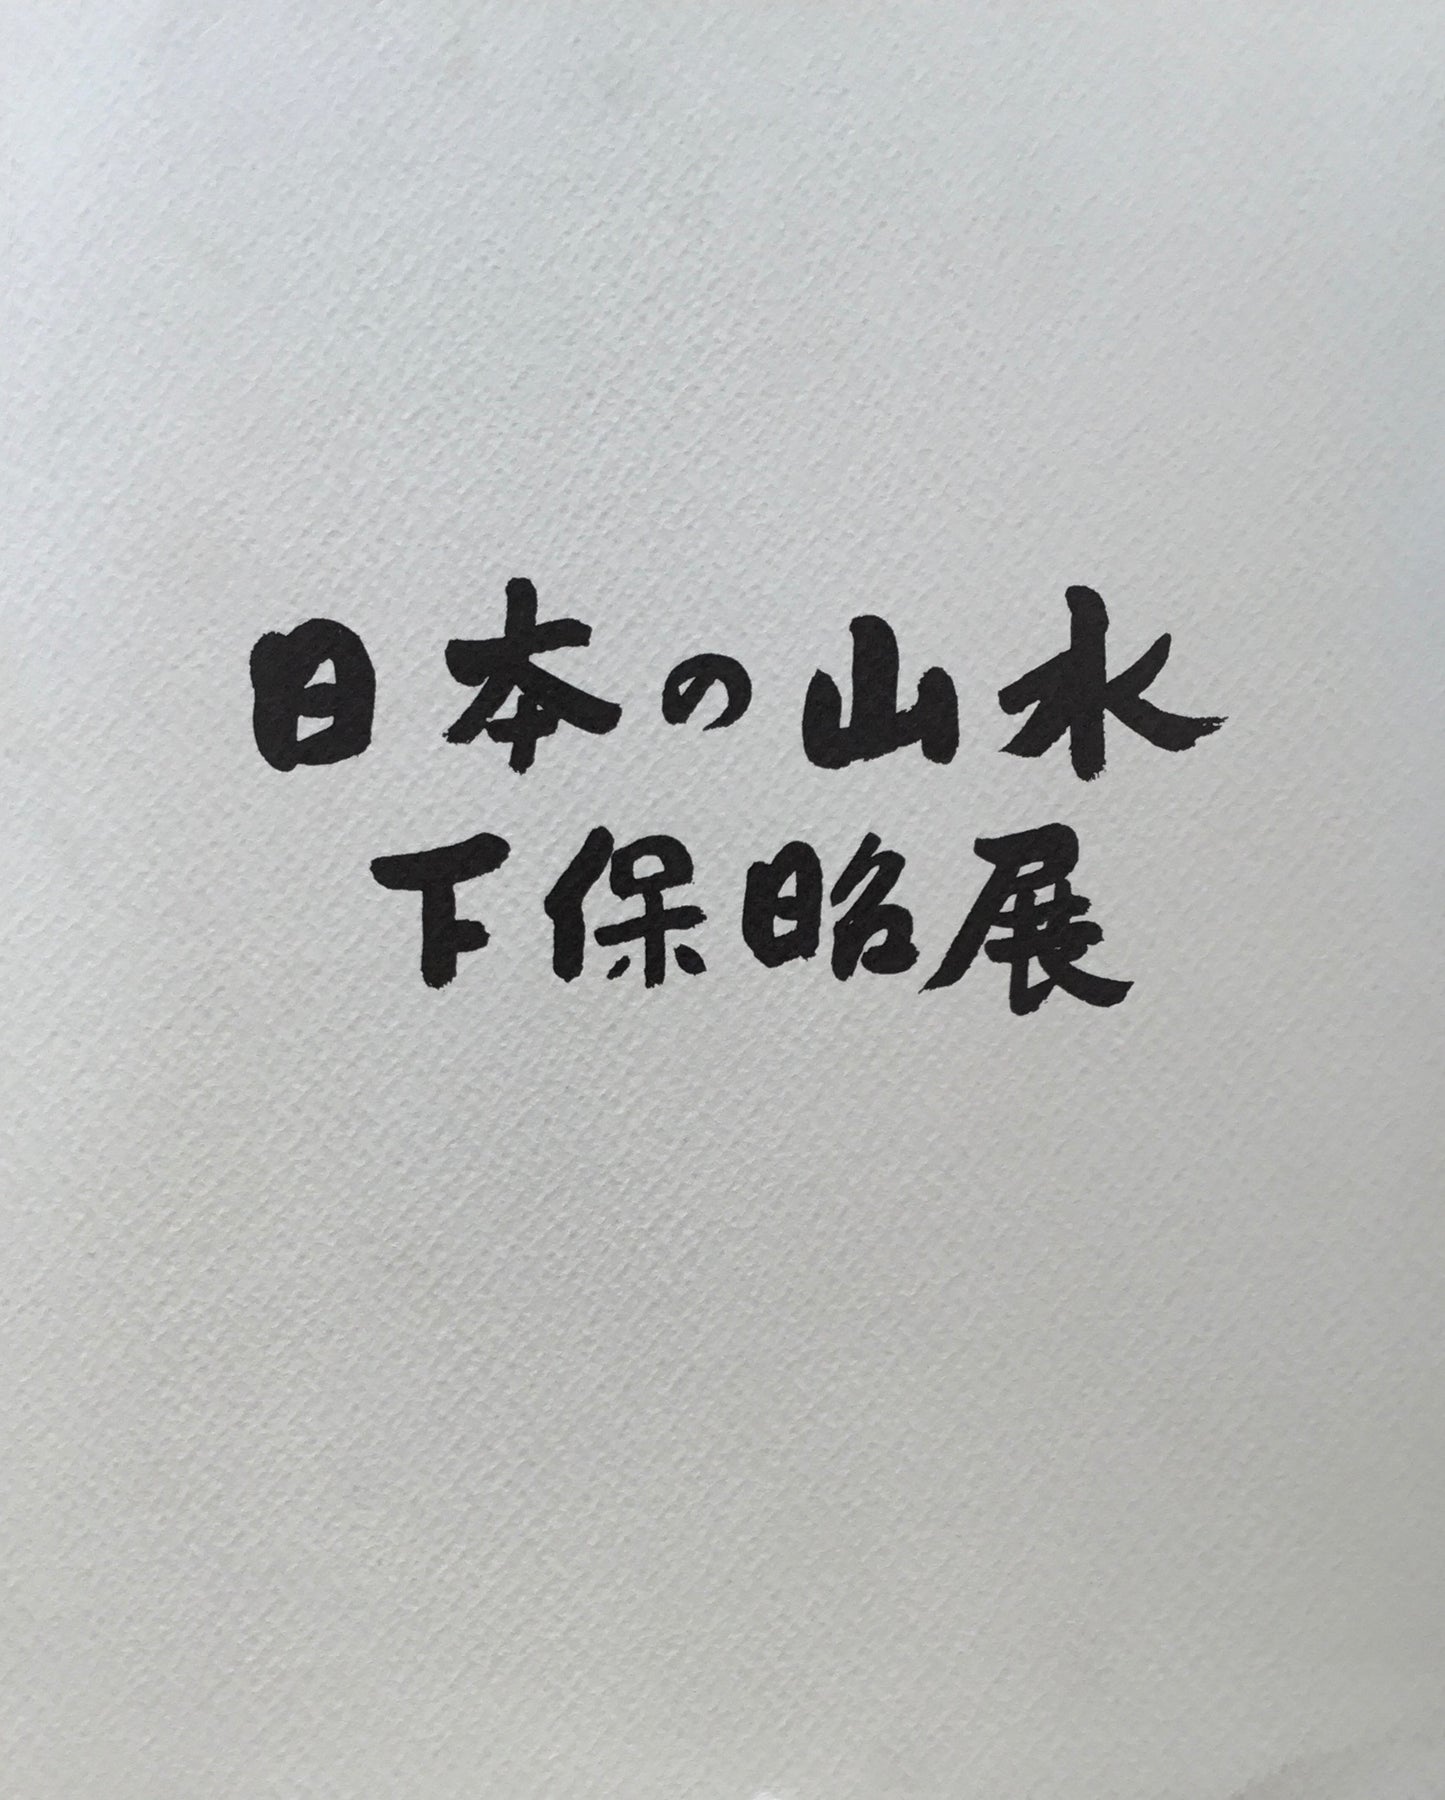 日本の山水
下保昭展